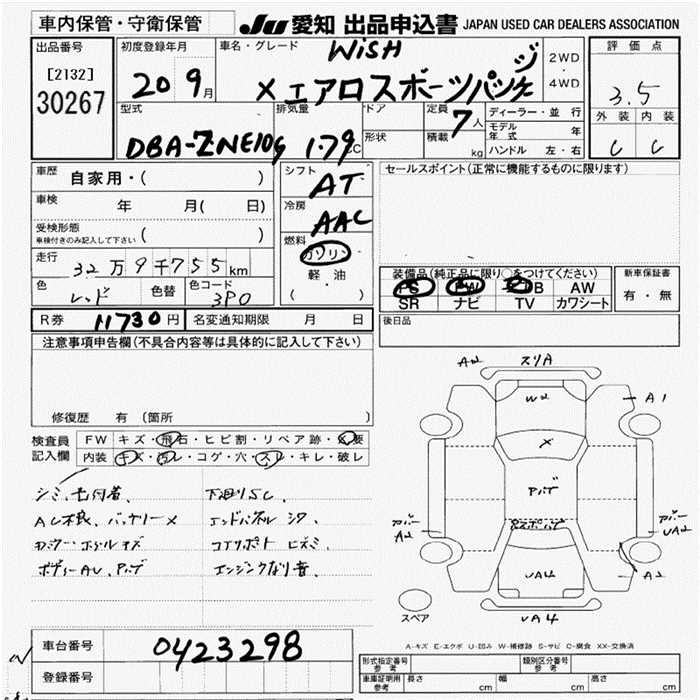 車内保管・守衛保管 JU 愛知 出品申込書 JAPAN USED CAR DEALERS ASSOCIATION
出品番号 初度登録年月 車名・グレード WISH 2WD・4WD 評価点
[2132] 20 9月 Xエアロスポーツパッケージ 3.5
30267 型式 排気量 ドア 定員 7人 ディーラー・並行 外装 内装
DBA-ZNE10G 1.79 CC 形状 積載 kg モデル年式 年 C C
ハンドル 左・右
車歴 自家用・( ) シフト AT セールスポイント(正常に機能するものに限ります)
車検 年 月( 日) 冷房 AAC
受検形態 ( )
車検付きのみ記入して下さい
燃料 ガソリン
走行 32万9千755km 軽・油
色 レッド 色替 色コード 3P0 ( )
装備品(純正品に限り○をつけてください) 新車保証書
PS PW AB AW 有・無
SR ナビ TV カワシート
R券 11730円 名変通知期限 月 日 後日品
注意事項申告欄(不具合内容等は具体的に記入して下さい)
修復歴 有(箇所
検査員記入欄 FW キズ・飛石・ヒビ割・リペア跡・X要
内装 キズ・汚レ・コゲ・穴・スレ・キレ・破レ
シミ、 下廻りSC、
AC不良、バッテリーX エンドパネル
ボディーAU、
エンジンタクリ音、
AW スリA
W2 A1
X
UA4 A2
スペア UA4
A-キズ E-エクボ U-凹み W-補修跡 S-サビ C-腐食 XX-交換済
車台番号 0423298
登録番号
型式指定番号 参考 類別区分番号 参考
車庫証明用 参考 長さ cm 幅 cm 高さ cm